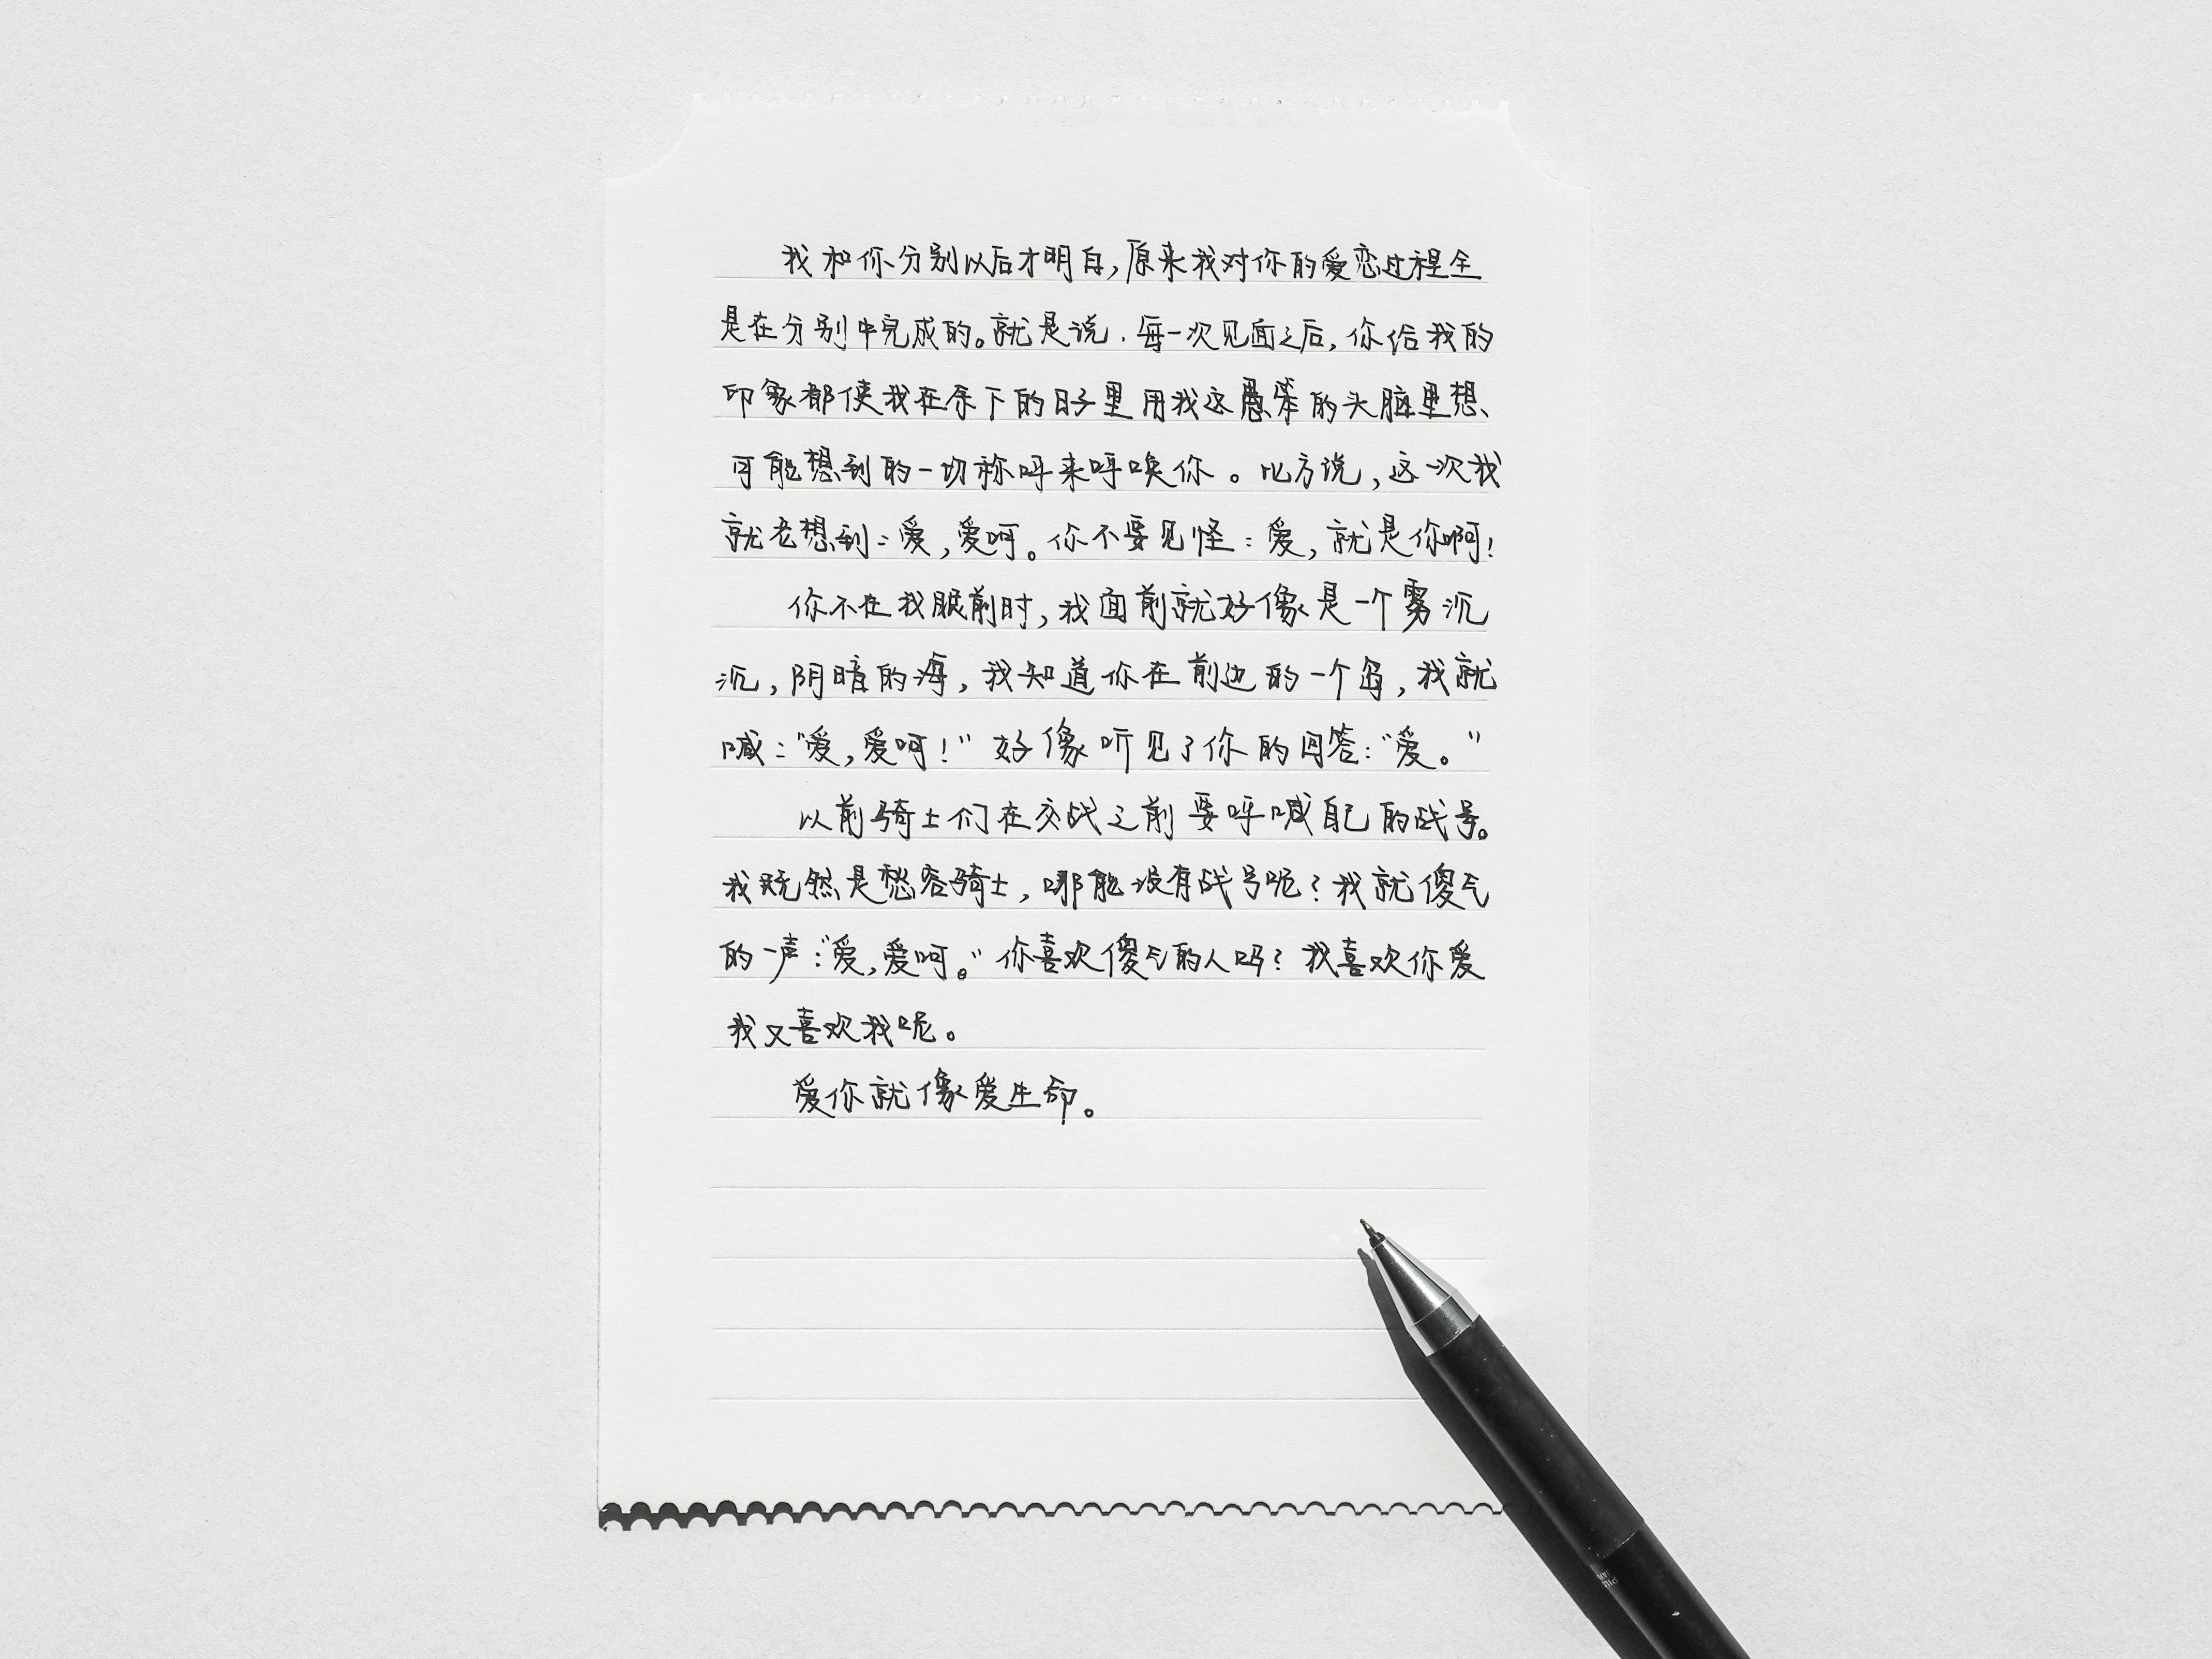 我和你分别以后才明白，原来我对你的爱恋过程全
是在分别中完成的。就是说，每一次见面之后，你给我的
印象都使我在余下的日子里用我这愚笨的头脑里想
可能想到的一切称呼来呼唤你。比方说，这一次我
就老想到：爱，爱呵。你不要见怪：爱，就是你啊！
你不在我眼前时，我面前就好像是一个雾沉
沉，阴暗的海，我知道你在前边的一个岛，我就
喊：“爱，爱呵！”好像听见了你的回答：“爱。”
以前骑士们在交战之前要呼喊自己的战号。
我既然是愁容骑士，哪能没有战号呢？我就傻气
的一声：“爱，爱呵。”你喜欢傻气的人吗？我喜欢你爱
我又喜欢我呢。
爱你就像爱生命。